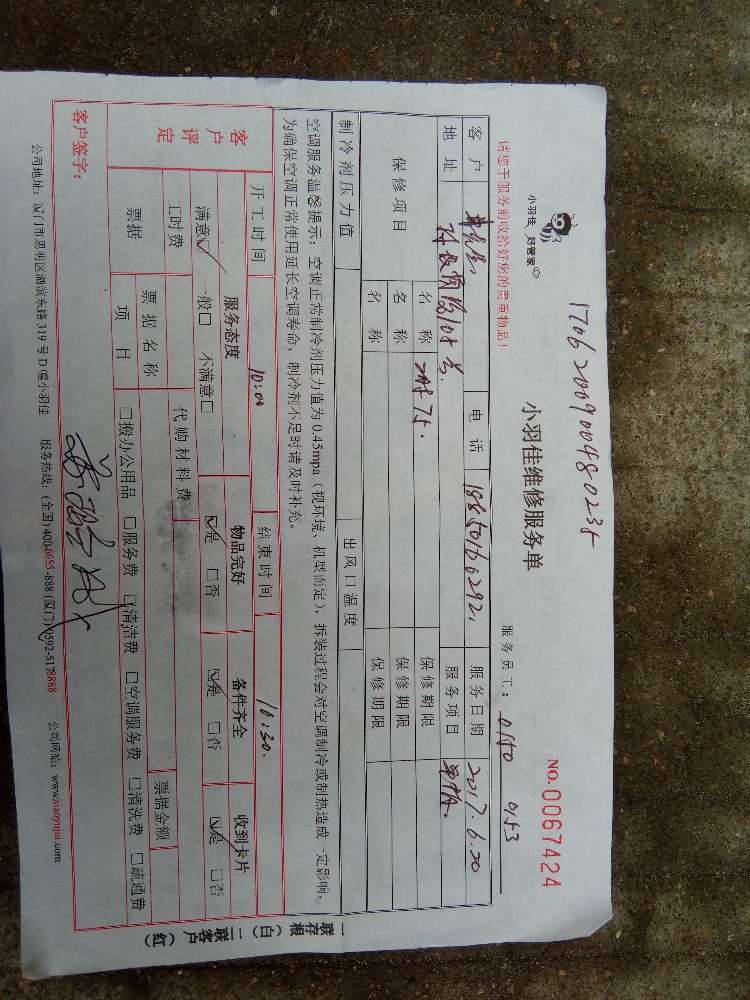 1706200900480235
小羽佳 好管家
小羽佳维修服务单
NO.0067424
请您于服务前收拾好您的贵重物品！
服务员工： 0140 0153
客户 电话 18850160292 服务日期 2017.6.20
地址 108号 服务项目
保修项目 名称 保修期限
名称 保修期限
名称 保修期限
制冷剂压力值 出风口温度
空调服务温馨提示：空调正常制冷剂压力值为0.45mpa（视环境、机型而定），拆装过程会对空调制冷或制热造成一定影响，
为确保空调正常使用延长空调寿命，制冷剂不足时请及时补充。
开工时间 10:00 结束时间 10:30.
客户评定 服务态度 物品完好 备件齐全 收到卡片
满意☑ 一般□ 不满意□ ☑是 □否 ☑是 □否 ☑是 □否
工时费 代购材料费
票据 票据名称 票据金额
项目 □搬办公用品 □服务费 □清洁费 □空调服务费 □清洗费 □疏通费
客户签字：
公司地址：厦门市思明区湖滨东路319号D幢小羽佳 服务热线：(全国)4004655-888 (厦门)0592-5178888 公司网站：www.xiaoyujia.com
一联存根（白）二联客户（红）